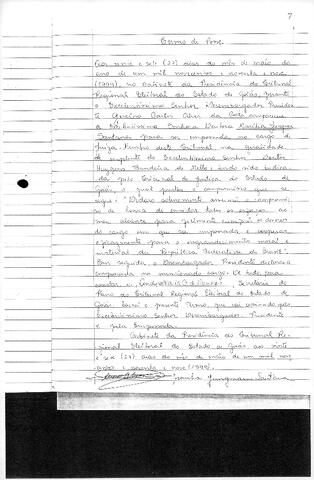 7
Termo de Posse
Aos vinte e sete (27) dias do mês de maio do
ano de um mil novecentos e noventa e nove
(1999), no Gabinete da Presidência do Tribunal
Regional Eleitoral do Estado de Goiás, perante
o Excelentíssimo Senhor Desembargador Presiden
te Carlos da compareceu
a Excelentíssima Senhora Doutora
Santana para ser empossada no cargo de
Juiza Tribunal na qualidade
de suplente do Excelentíssimo Senhor Doutor
Bandeira de Mello, tendo sido indicada
Tribunal de Justiça do Estado de
Goiás, a qual prestou o compromisso que se
segue: "Declaro solenemente assumir o compromis
so de honra de envidar todos os esforços ao
meu alcance para fielmente cumprir os deveres
do cargo em que sou empossada e cooperar
eficazmente para o engrandecimento moral e
material da República Federativa do Brasil".
Em seguida, o Desembargador Presidente declarou a
empossada no mencionado cargo. De tudo para
constar, eu, Secretária do
Pleno do Tribunal Regional Eleitoral do Estado de
Goiás, lavrei o presente Termo, que vai assinado pelo
Excelentíssimo Senhor Desembargador Presidente
e pela Empossada.
Gabinete da Presidência do Tribunal Re-
gional Eleitoral do Estado de Goiás, aos vinte
e sete (27) dias do mês de maio de um mil nove
centos e noventa e nove (1999).
Jungmann Santana